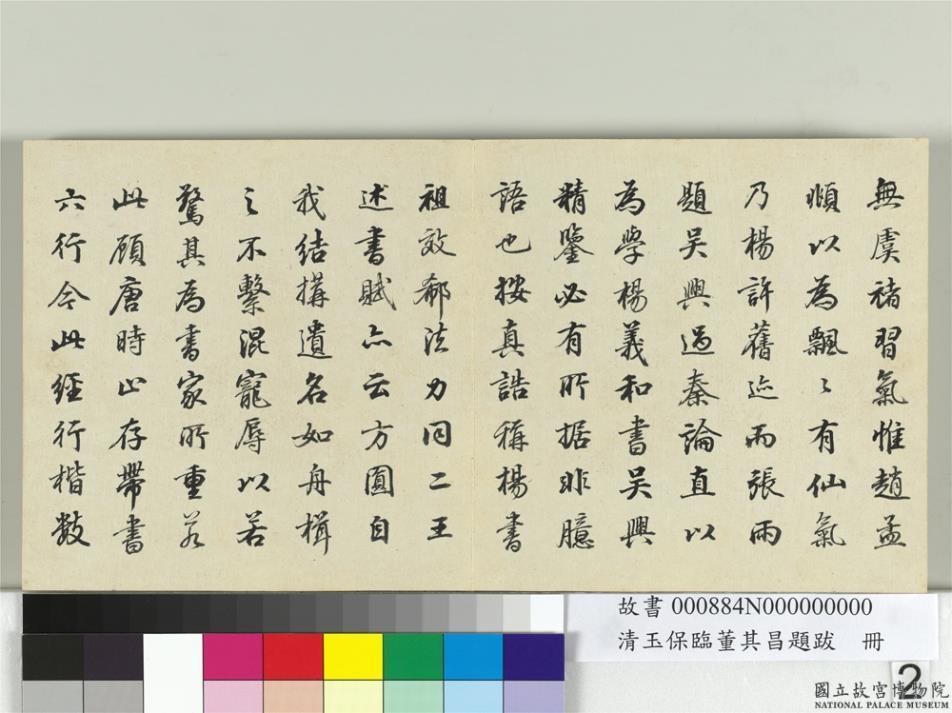 無虞褚習氣惟趙孟
頫以為飄〻有仙氣
乃楊許舊迹而張雨
題吳興過秦論直以
為學楊羲和書吳興
精鑒必有所据非臆
語也按真誥稱楊書
祖效郗法力同二王
述書賦亦云方圓自
我結搆遺名如舟楫
之不繫混寵辱以若
驚其為書家所重若
此顧唐時止存帶書
六行今此經行楷數
故書 000884N000000000
清玉保臨董其昌題跋 冊
2
國立故宮博物院
NATIONAL PALACE MUSEUM